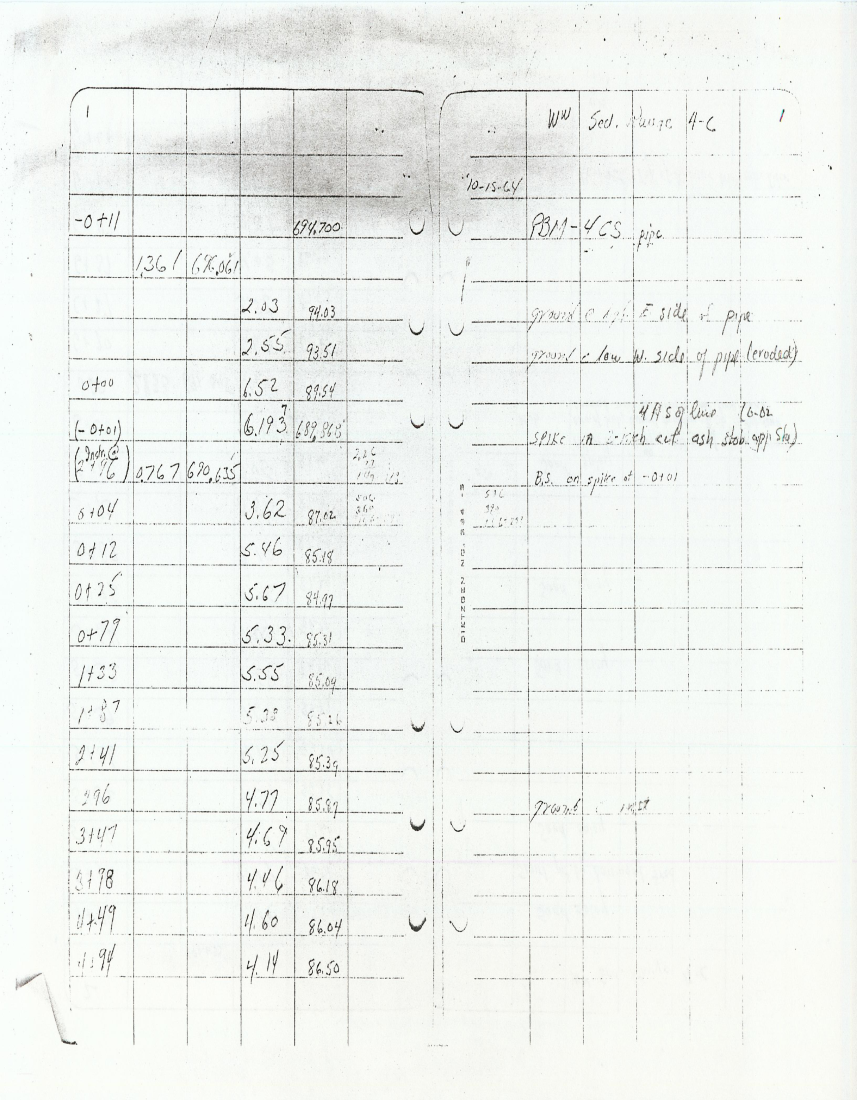 1
-0+11 694.700
1.361 696.061
2.03 94.03
2.55 93.51
0+00 6.52 89.54
(-0+01) 6.193 689.868
(Instr. @
2+96) 0.767 690.635
0+04 3.62 87.02
0+12 5.46 85.18
0+25 5.67 84.97
0+79 5.33 85.31
1+33 5.55 85.09
1+87 5.38 85.26
2+41 5.25 85.39
296 4.77 85.87
3+47 4.69 85.95
3+98 4.46 86.18
4+49 4.60 86.04
4+94 4.14 86.50
WW Sed. Range 4-C 1
10-15-64
PBM-4CS pipe
ground E side of pipe
ground @ low W. side of pipe (eroded)
4 ft S of line
spike in cut ash stob opp Sta)
B.S. on spike at -0+01
ground @ inst